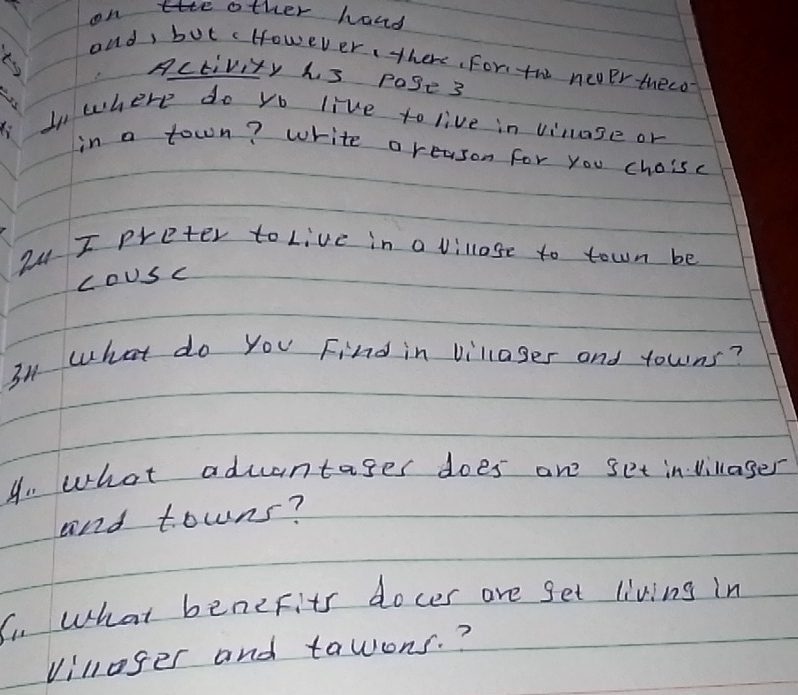 on the other hand
and, but, However, there, For, the never theco
Activity 1.3 Page 3
1 where do yo live to live in village or
in a town? write a reason for you choise
2 I preter to Live in a village to town be
couse
3 what do you Find in villages and towns?
4 what advantages does are get in villages
and towns?
5 what benefits doces are get living in
villages and tawons.?